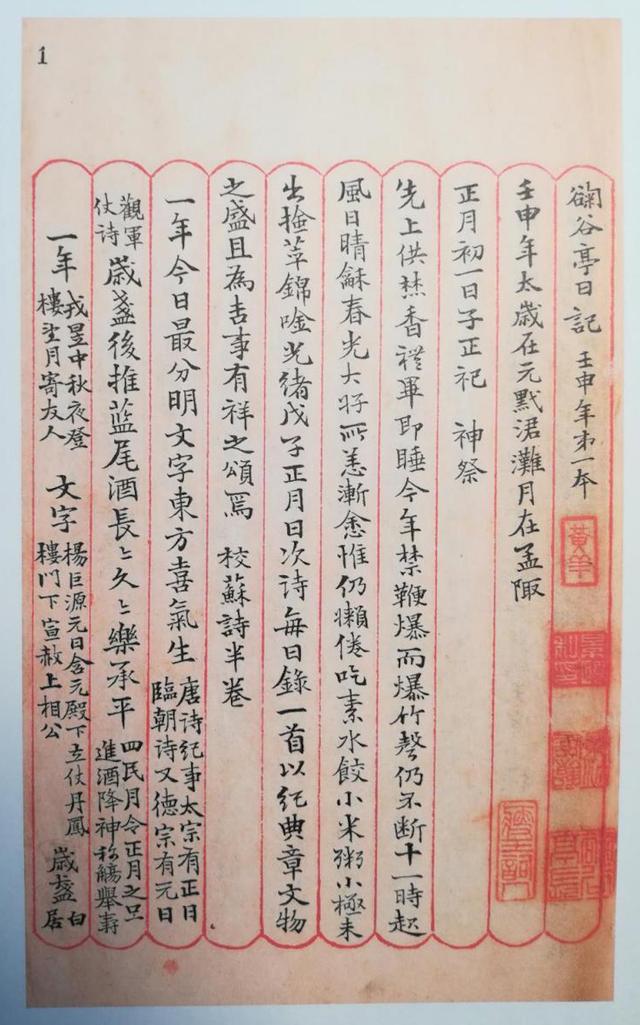 谷亭日記 壬申年第一本
壬申年太歲在元黓涒灘月在孟陬
正月初一日子正祀 神祭
先上供焚香禮畢即睡今年禁鞭爆而爆竹聲仍不斷十一時起
風日晴龢春光大好所恙漸愈惟仍懶倦吃素水餃小米粥小極未
出撿萃錦唫光緒戊子正月日次詩每日錄一首以紀典章文物
之盛且為吉事有祥之頌焉 校蘇詩半卷
一年今日最分明文字東方喜氣生 唐诗纪事太宗有正日臨朝诗又德宗有元日
觀軍仗诗 歲盞後推蓝尾酒長〻久〻樂承平 四民月令正月之旦進酒降神称觴舉壽
一年 戎昱中秋夜登樓望月寄友人 文字 楊巨源元日含元殿下立仗丹鳳樓門下宣赦上相公 歲盞 白居
1